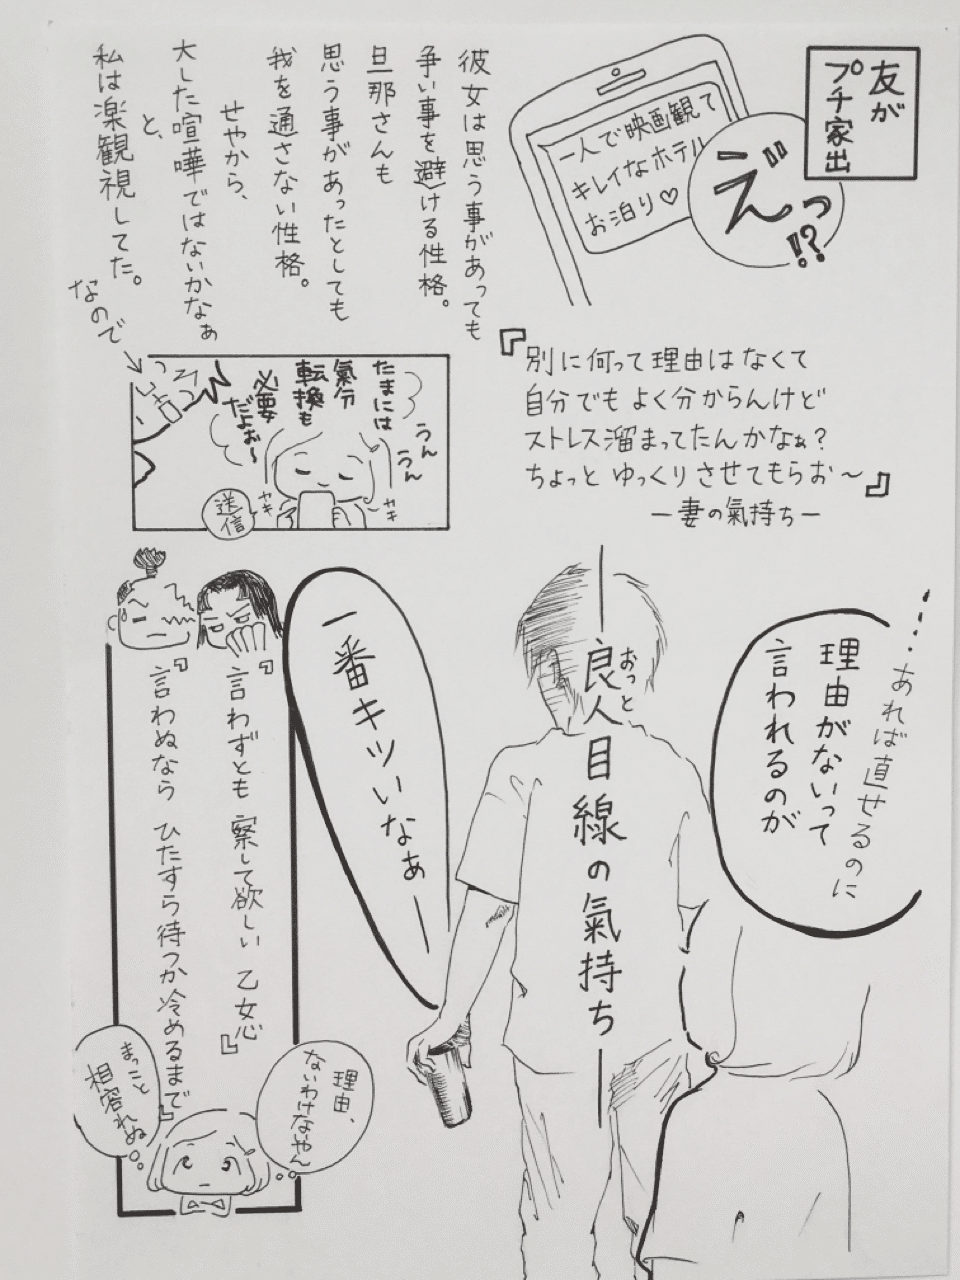 友が
プチ家出
一人で映画観て
キレイなホテル
お泊り♡
えっ!?
彼女は思う事があっても
争い事を避ける性格。
旦那さんも
思う事があったとしても
我を通さない性格。
せやから、
大した喧嘩ではないかなぁ
と、
私は楽観視してた。
なので
『別に何って理由はなくて
自分でもよく分からんけど
ストレス溜まってたんかなぁ?
ちょっとゆっくりさせてもらお〜』
ー妻の氣持ちー
たまには
氣分
転換も
必要
だよぉ〜
うん
うん
カキ
カキ
送信
…あれば直せるのに
理由がないって
言われるのが
ー良人目線の氣持ちー
おっと
一番キツいなぁー
『言わずとも 察して欲しい 乙女心』
『言わぬなら ひたすら待つか冷めるまで』
理由、
ないわけないやん
まっこと
相容れぬ